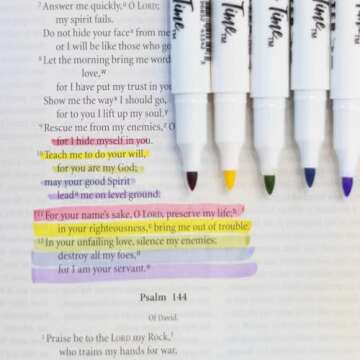 7 Answer me quickly,g O LORD;
my spirit fails.
Do not hide your face from me
or I will be like those who go
8 Let the morning bring me word
love,
for I have put my trust in you
Show me the way I should go,
for to you I lift up my soul.
9 Rescue me from my enemies, O
for I hide myself in you.
10 Teach me to do your will,
for you are my God;
may your good Spirit
lead me on level ground.
11 For your name's sake, O LORD, preserve my life;
in your righteousness, bring me out of trouble.
12 In your unfailing love, silence my enemies;
destroy all my foes,
for I am your servant.
Psalm 144
Of David.
1 Praise be to the LORD my Rock,
who trains my hands for war,
Time
Time
Time
Time